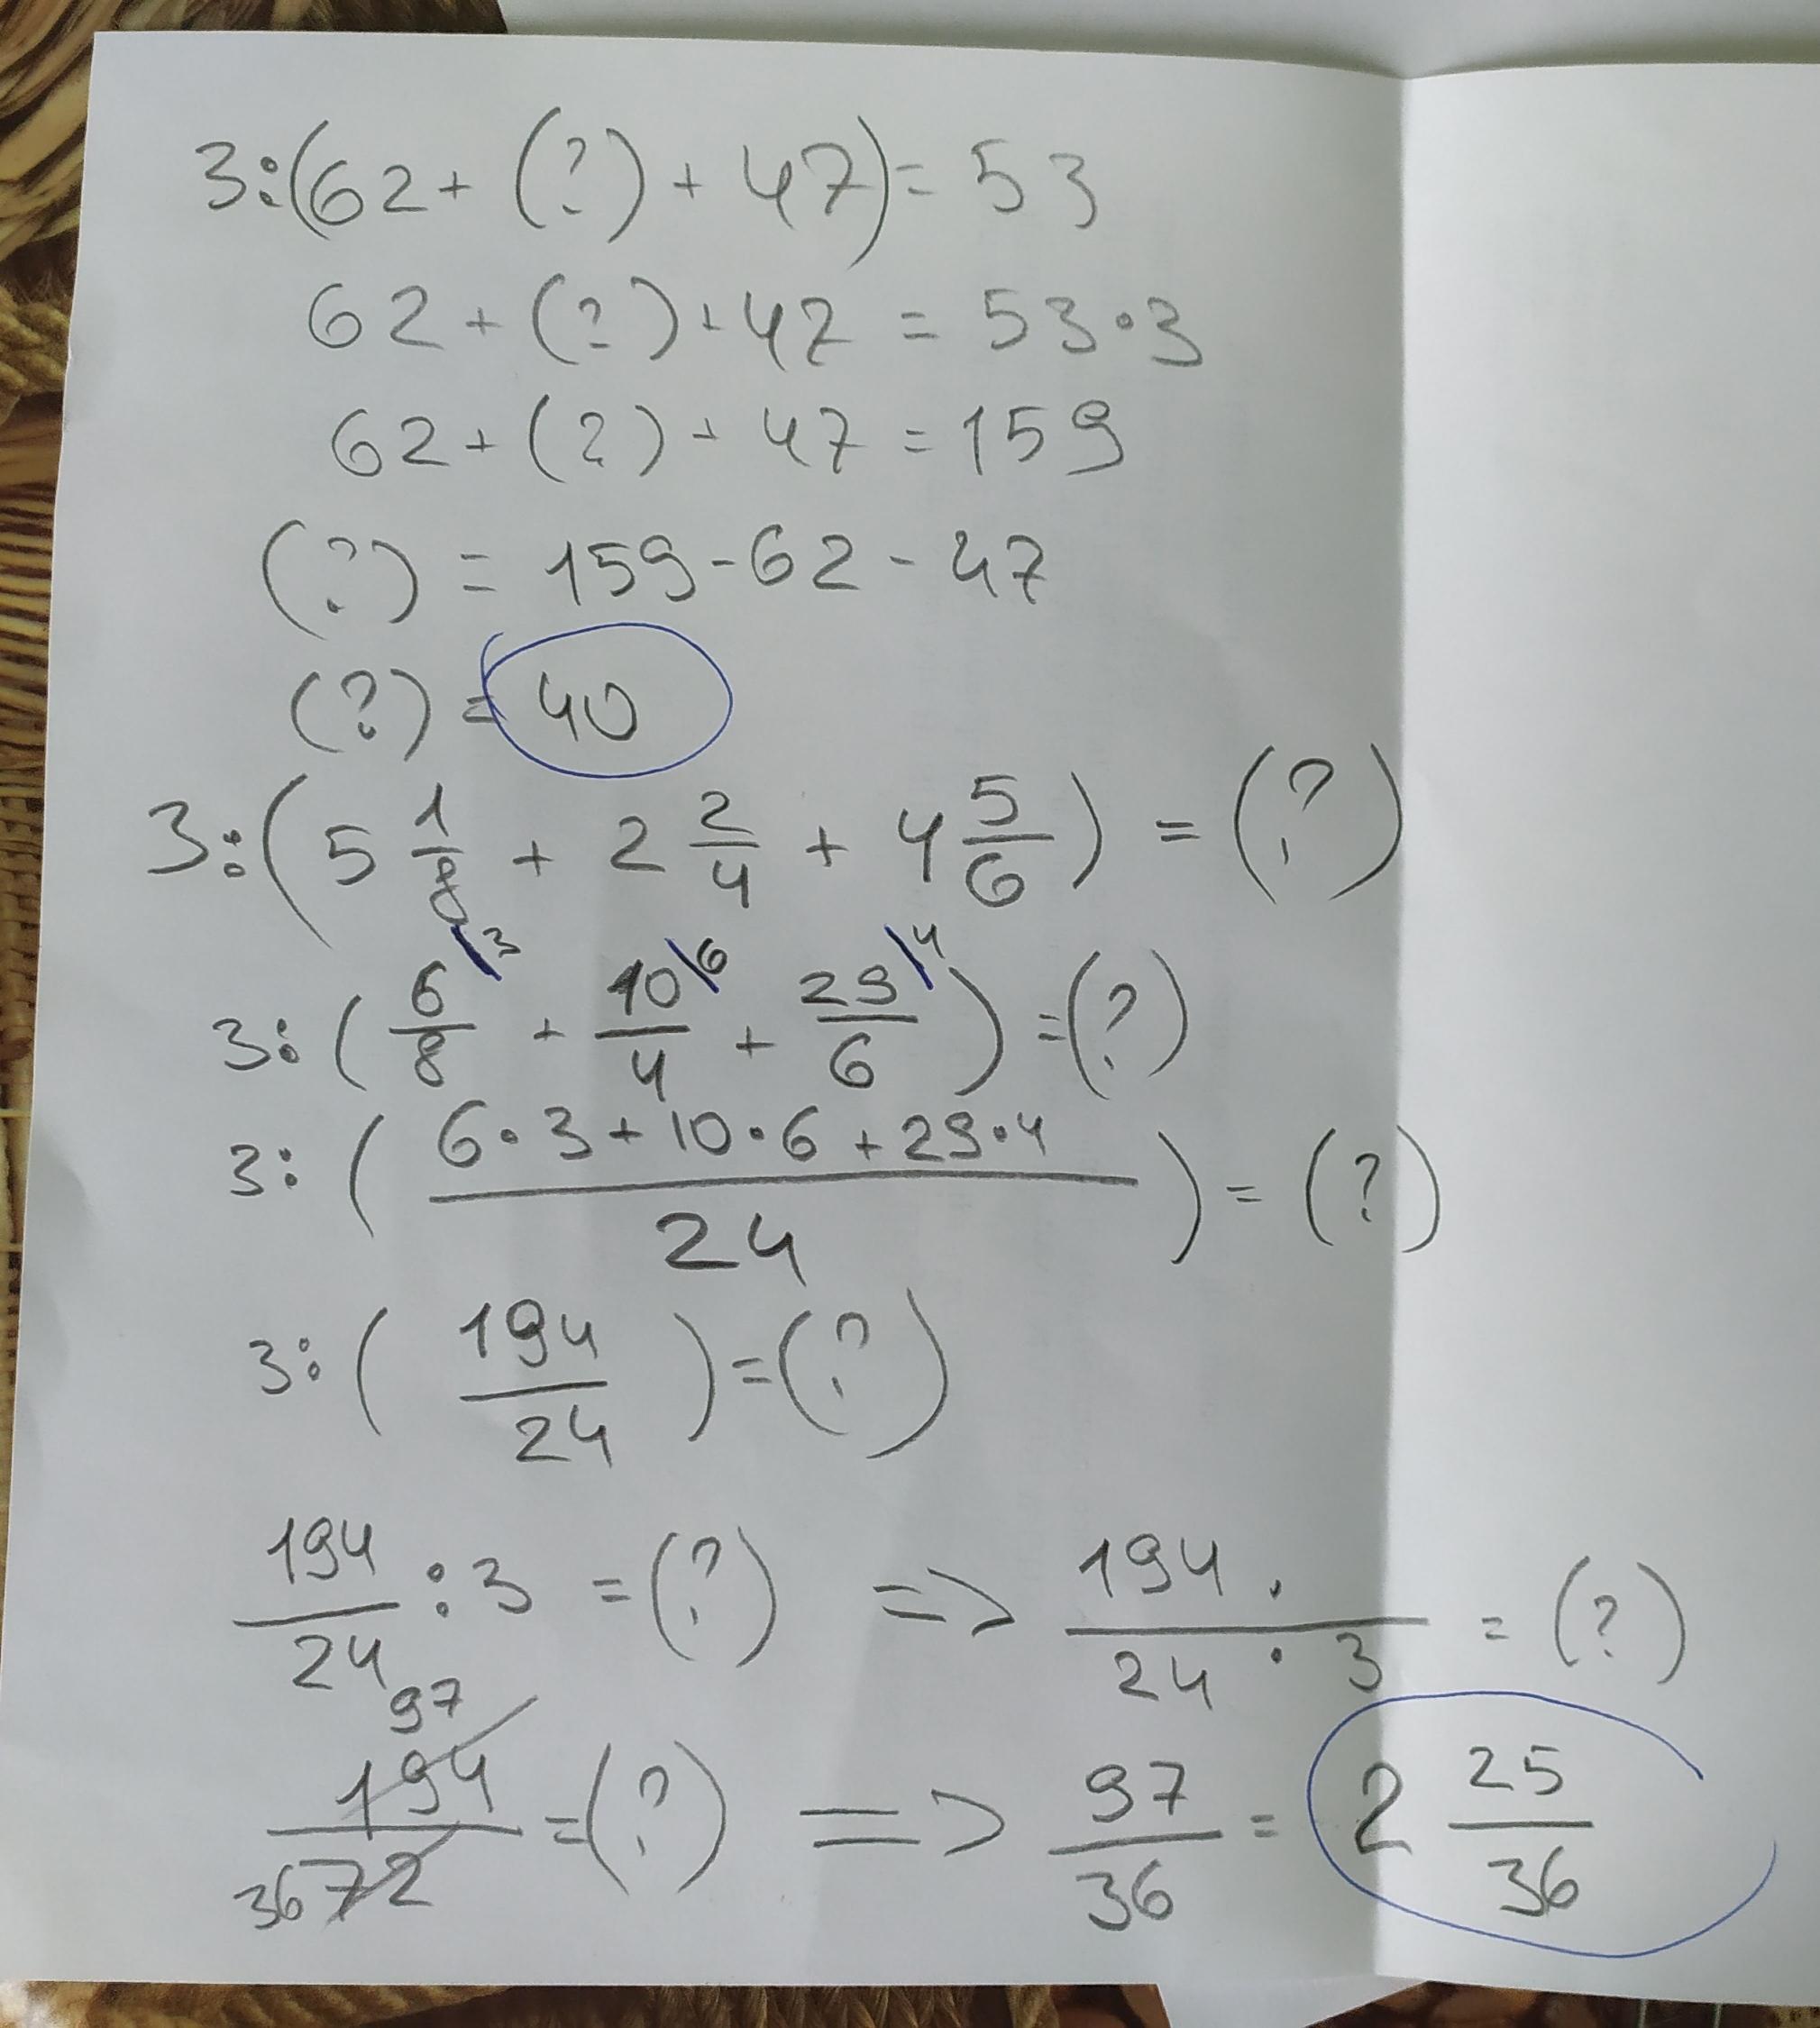 3:(62 + (?) + 47) = 53
62 + (?) + 47 = 53·3
62 + (?) + 47 = 159
(?) = 159 - 62 - 47
(?) = 40
3:(5 1/8 + 2 2/4 + 4 5/6) = (?)
3:(6/8 \3 + 10/4 \6 + 29/6 \4) = (?)
3:((6·3 + 10·6 + 29·4)/24) = (?)
3:(194/24) = (?)
194/24 : 3 = (?) => 194·/24·3 = (?)
97
194/36 72 = (?) => 97/36 = 2 25/36